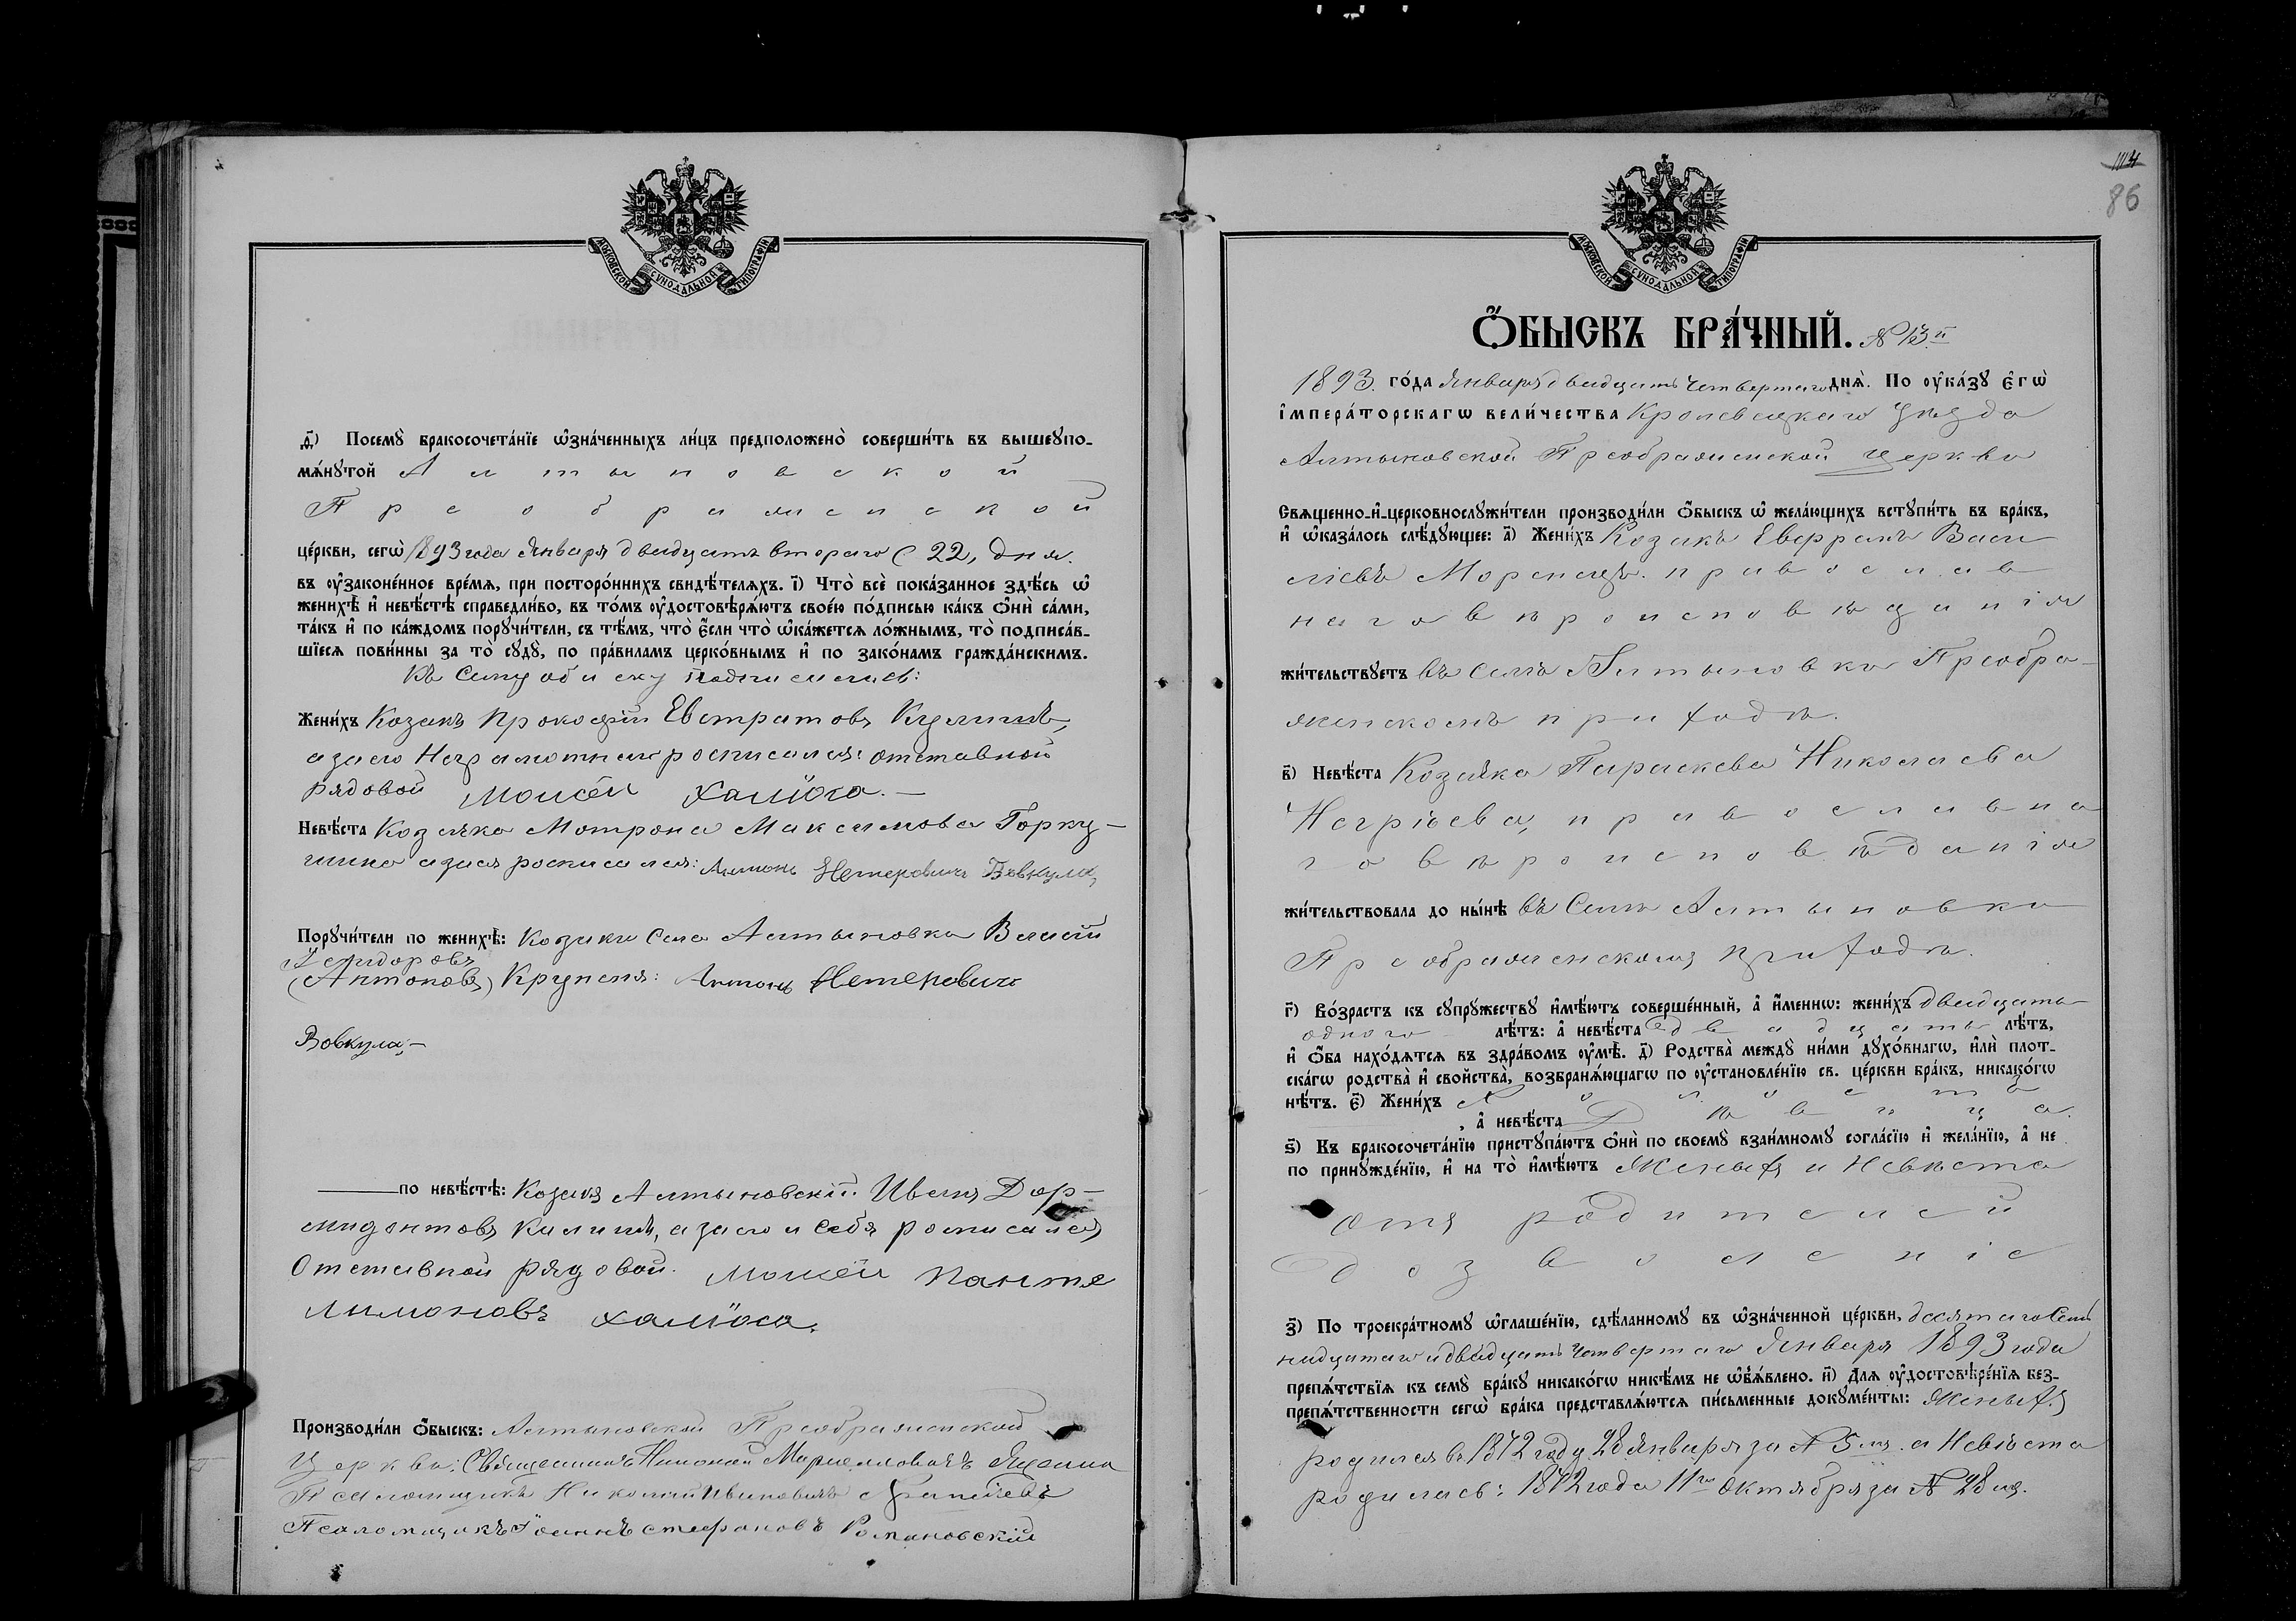 МОСКОВСКОЙ СУНОДАЛЬНОЙ ТИПОГРАФІИ
ѳ҃) Посемꙋ̀ бракосочета́нїе ѡ҆зна́ченныхъ ли́цъ предположено̀ соверши́ть въ вышеꙋпо-
мѧ́нꙋтой Алтыновской
Преображенской
це́ркви, сегѡ̀ 1893 года Января двадцать втораго (22, дня.
въ ᲂу҆законе́нное вре́мѧ, при посторо́ннихъ свидѣ́телѧхъ. і҃) Что̀ всѐ пока́занное здѣ́сь ѡ҆
женихѣ̀ и҆ невѣ́стѣ справедли́во, въ то́мъ ᲂу҆достовѣрѧ́ютъ своею̀ по́дписью ка́къ ѻ҆нѝ са́ми,
та́къ и҆ по ка́ждомъ порꙋчи́тели, съ тѣ́мъ, что̀ є҆́сли что̀ ѡ҆ка́жетсѧ ло́жнымъ, то̀ подписа́в-
шїесѧ пови́нны за то̀ сꙋдꙋ̀, по пра́виламъ церко́внымъ и҆ по зако́намъ гражда́нскимъ.
Къ Сему обыску подписались:
Жени́хъ Козакъ Прокофій Евстратовъ
а за его Неграмотнаго росписался: отставной
рядовой Моисей Халюса.—
Невѣ́ста Козачка Мотрона Максимова Горку-
шина а за ея росписался: Антонъ Нетеровичъ Вовкула,
Порꙋчи́тели по женихѣ̀: Козаки Села Алтыновки Власій
(Антоновъ) Крупеня: Антонъ Нетеровичъ
Вовкула;—
по невѣ́стѣ: Козакъ Алтыновскій Иванъ Дор-
мидонтовъ Калишъ, а за его и себя росписался
Отставной рядовой. Моисей Пантя
лимоновъ Халюса.
Производи́ли ѻ҆́быскъ: Алтыновской Преображенской
Церкви: Священникъ
Псаломщикъ Николай Ивановичъ
Псаломщикъ Іоаннъ Стефановъ Романовскій
86
МОСКОВСКОЙ СУНОДАЛЬНОЙ ТИПОГРАФІИ
Ѻ҆́БЫСКЪ БРА́ЧНЫЙ. № 13й
1893. го́да Января двадцать четвертаго днѧ̀. По ᲂу҆ка́зꙋ є҆гѡ̀
і҆мпера́торскагѡ вели́чества Кролевецкаго Уѣзда
Алтыновской Преображенской церкви
Свѧщенно-и҆-церковнослꙋжи́тели производи́ли ѻ҆́быскъ ѡ҆ жела́ющихъ встꙋпи́ть въ бра́къ,
и҆ ѡ҆каза́лось слѣ́дꙋющее: а҃) Жени́хъ Козакъ Васи-
ліевъ православ
наго вѣроисповѣданія
жи́тельствꙋетъ въ Селѣ Алтыновка Преобра-
женскомъ приходѣ.
в҃) Невѣ́ста Козачка Параскева Николаева
Негріева, православна
го вѣроисповѣданія
жи́тельствовала до ны́нѣ въ Селѣ Алтыновка
Преображенскомъ приходѣ.
г҃) Во́зрастъ къ сꙋпрꙋ́жествꙋ и҆мѣ́ютъ соверше́нный, а҆ и҆́меннѡ: жени́хъ двадцать
одного лѣ́тъ: а҆ невѣ́ста двадцать лѣ́тъ,
и҆ ѻ҆́ба нахо́дѧтсѧ въ здра́вомъ ᲂу҆мѣ̀. д҃) Родства̀ междꙋ̀ ни́ми дꙋхо́внагѡ, и҆лѝ плот-
ска́гѡ родства̀ и҆ сво́йства̀, возбранѧ́ющагѡ по ᲂу҆становле́нїю св. це́ркви бра́къ, никако́гѡ
нѣ́тъ. є҃) Жени́хъ Холостъ
, а҆ невѣ́ста Дѣвица.
ѕ҃) Къ бракосочета́нїю пристꙋпа́ютъ ѻ҆нѝ по своемꙋ̀ взаи́мномꙋ согла́сїю и҆ жела́нїю, а҆ не
по принꙋжде́нїю, и҆ на то̀ и҆мѣ́ютъ Женихъ и Невѣста
отъ родителей
дозволеніе
з҃) По троекра́тномꙋ ѡ҆глаше́нїю, сдѣ́ланномꙋ въ ѡ҆зна́ченной це́ркви, десятаго Сем
надцатаго и двадцать четвертаго Января 1893 года
препѧ́тствїѧ къ семꙋ̀ бра́кꙋ никако́гѡ никѣ́мъ не ѡ҆б̾ѧ́влено. и҃) Длѧ ᲂу҆достовѣре́нїѧ без-
препѧ́тственности сегѡ̀ бра́ка представлѧ́ютсѧ пи́сьменные докꙋме́нты: Женихъ
родился въ 1872 году 28 Января за № 5 мъ. а Невѣста
родилась: 1872 года 11го октября за № 28 мъ.